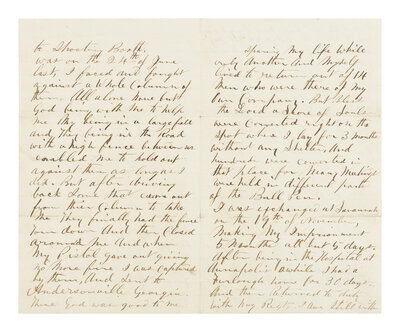 to Shooting Booth.
was on the 24th of June
last, I faced and fought
against a whole Column of
them. All alone none but
God being with me to help
me they being in a large field
and they being in the Road
with a high fence between us
enabled me to hold out
against them as long as I
did. But after driving
back some that came out
from their Column to take
me They finally had the fence
torn down And then Closed
around me And when
My Pistol gave out giving
no more fire I was Captured
by them, And Sent to
Andersonville Georgia.
There God was good to me
Sparing My life While
only Another And Myself
lived to return out of 14
Men who were there of my
Own Company. But blest
the Lord a score of Souls
were Converted right on the
spot where I lay for 3 months
without any Shelter, And
hundreds were converted in
that place, for Many Meetings
were held in different parts
of the Bull Pen.
I was exchanged at Savannah
on the 19th of November,
Making My Imprisonment
5 Months all but 5 days.
After being in the Hospital at
Annapolis awhile I had a
furlough home for 30 days.
And then returned to duty
with My Regt. I Am Still with